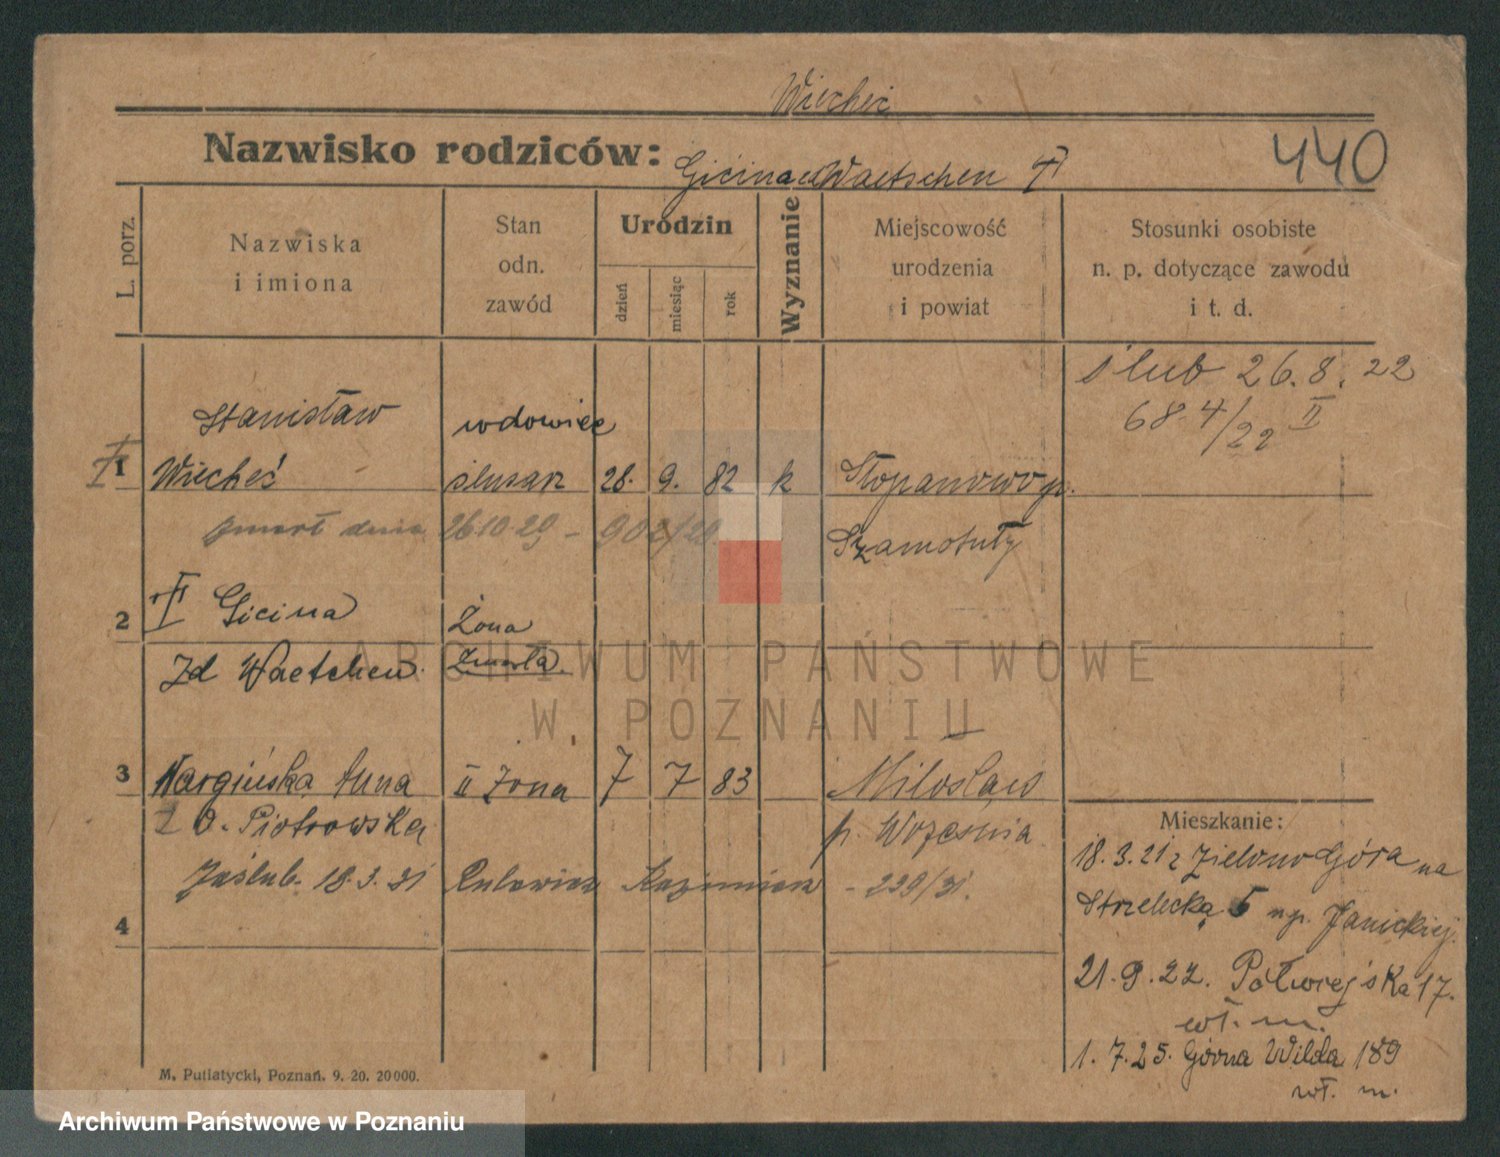 Wiecheć
Nazwisko rodziców:
Gicina Waetschen
440
L. porz.
Nazwiska
i imiona
Stan
odn.
zawód
Urodzin
dzień
miesiąc
rok
Wyznanie
Miejscowość
urodzenia
i powiat
Stosunki osobiste
n. p. dotyczące zawodu
i t. d.
ślub 26. 8. 22
68 4/22 II
Stanisław wdowiec
1 Wiecheć ślusarz 28. 9. 82 k Stopanowo p.
zmarł dnia 26 10 29 - 902/29 Szamotuły
2 Gicina Żona
Zd Waetchen zmarła
3 Nargińska Anna II żona 7 7 83 Miłosław
z d. Piotrowska p. Września
Zaślub. 18.3.31 Kazimierz - 229/31.
4
Mieszkanie:
18. 3. 21 z Zielono Góra na
Strzelecką 5 np. Janickiej.
21. 9. 22. Półwiejska 17.
wł. m.
1. 7. 25. Górna Wilda 189
wł. m.
M. Putiatycki, Poznań. 9. 20. 20000.
ARCHIWUM PAŃSTWOWE
W POZNANIU
Archiwum Państwowe w Poznaniu